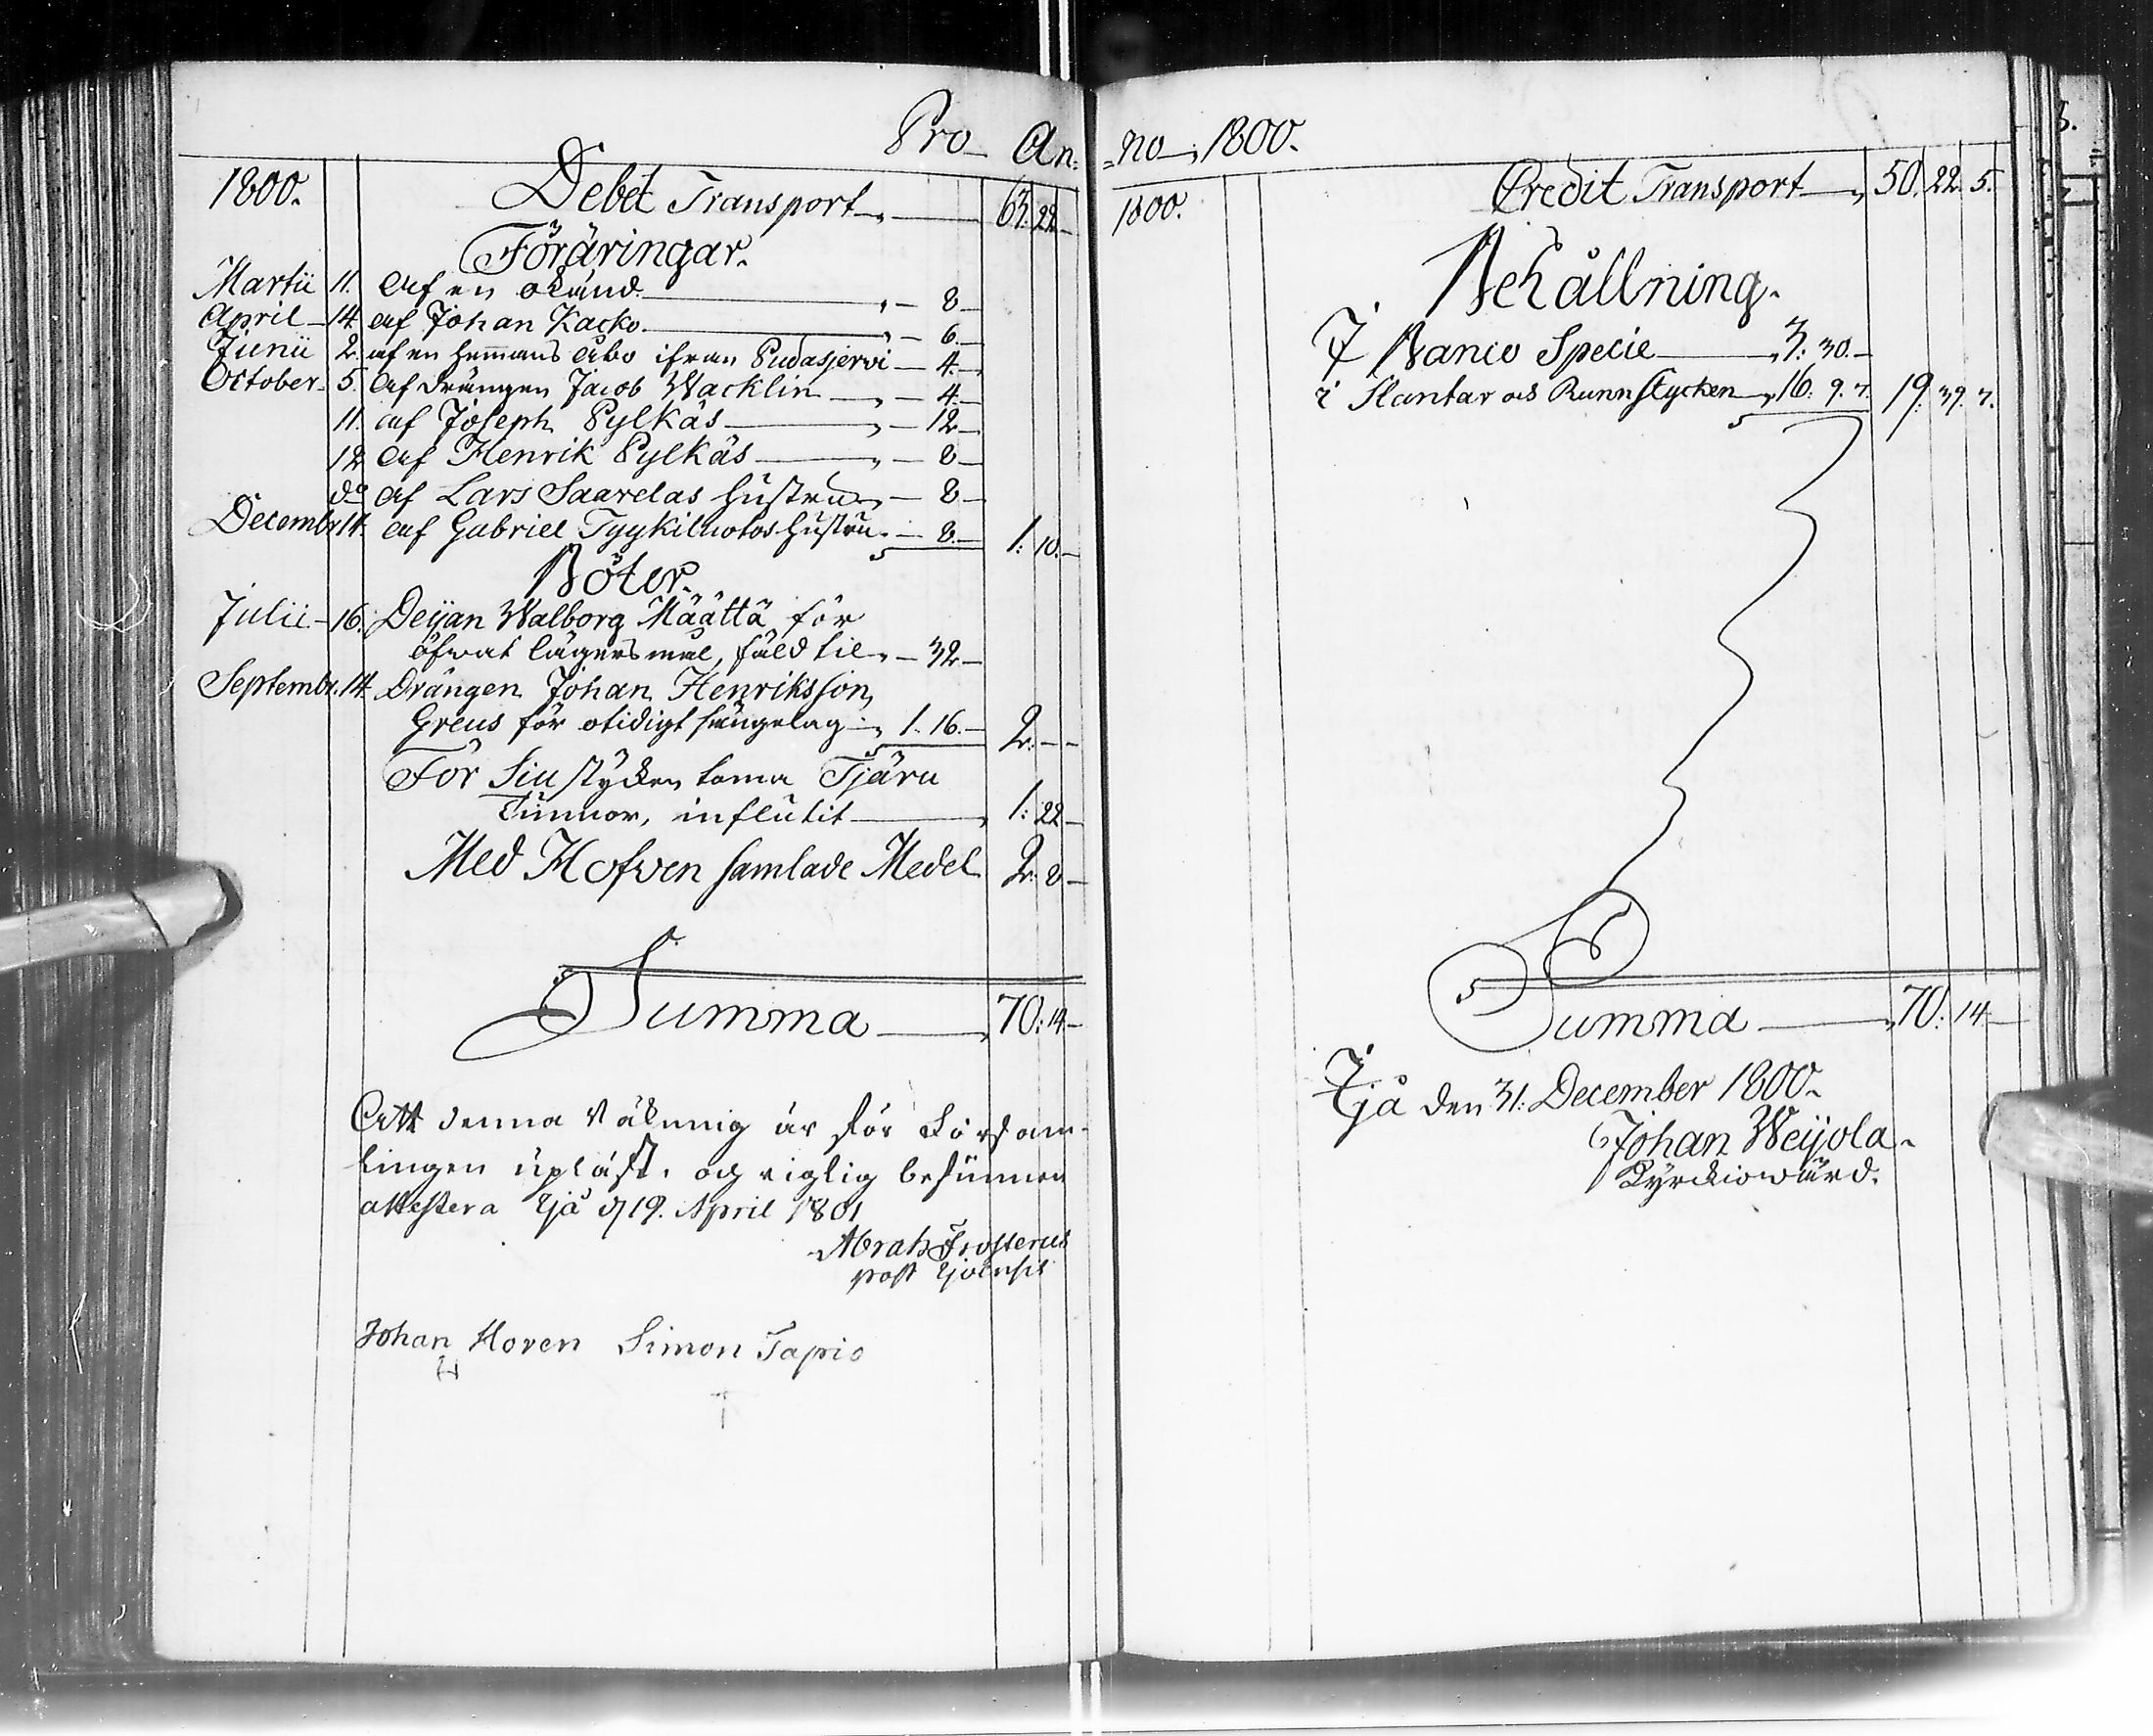 Pro An:
1800. Debet Transport 63: 22
Föräringar.
Martii 11. Af en okänd. 8
April 14 af Johan Kacko. 6.
Junii 2. af en hemans åbo ifrån Pudasjerwi 4
October 5. Af drängen Jacob Wacklin 4.
11. af Joseph Pylkäs 12
12 Af Henrik Pylkäs 8
do af Lars Saarelas hustru 8
Decembr 14. af Gabriel Tyykiluotos hustru 8. 1: 10.
Böter.
Julii 16. Deijan Walborg Määttä för
öfvat lägersmål, fäld til 32
Septembr. 14 Drängen Johan Henriksson
Greus för otidigt sängelag 1. 16. 2.
För siu stycken toma Tjäru
Tunnor, influtit 1: 22
Med Hofven samlade Medel 2. 8
Summa 70: 14
Att denna Räkning är för Församlingen
lingen upläst, og rigtig befunnen
attestera Ijå d 19. April 1801
Abrah Frosterus
past Ijoensis
Johan Hoven Simon Tapio
H
T
=no 1800.
1800. Credit Transport 50. 22. 5.
Behållning.
I Banco Specie 3: 30.
i Slantar och Runnstycken 16. 9. 7. 19: 39. 7.
Summa 70: 14
Ijå den 31: December 1800.
Johan Weijola.
Kyrckiowärd.